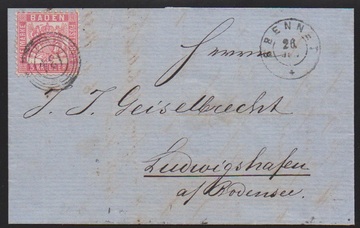 BADEN
BRENNET
26
Herrn
J. J. Geiselbrecht
Ludwigshafen
a/Bodensee.